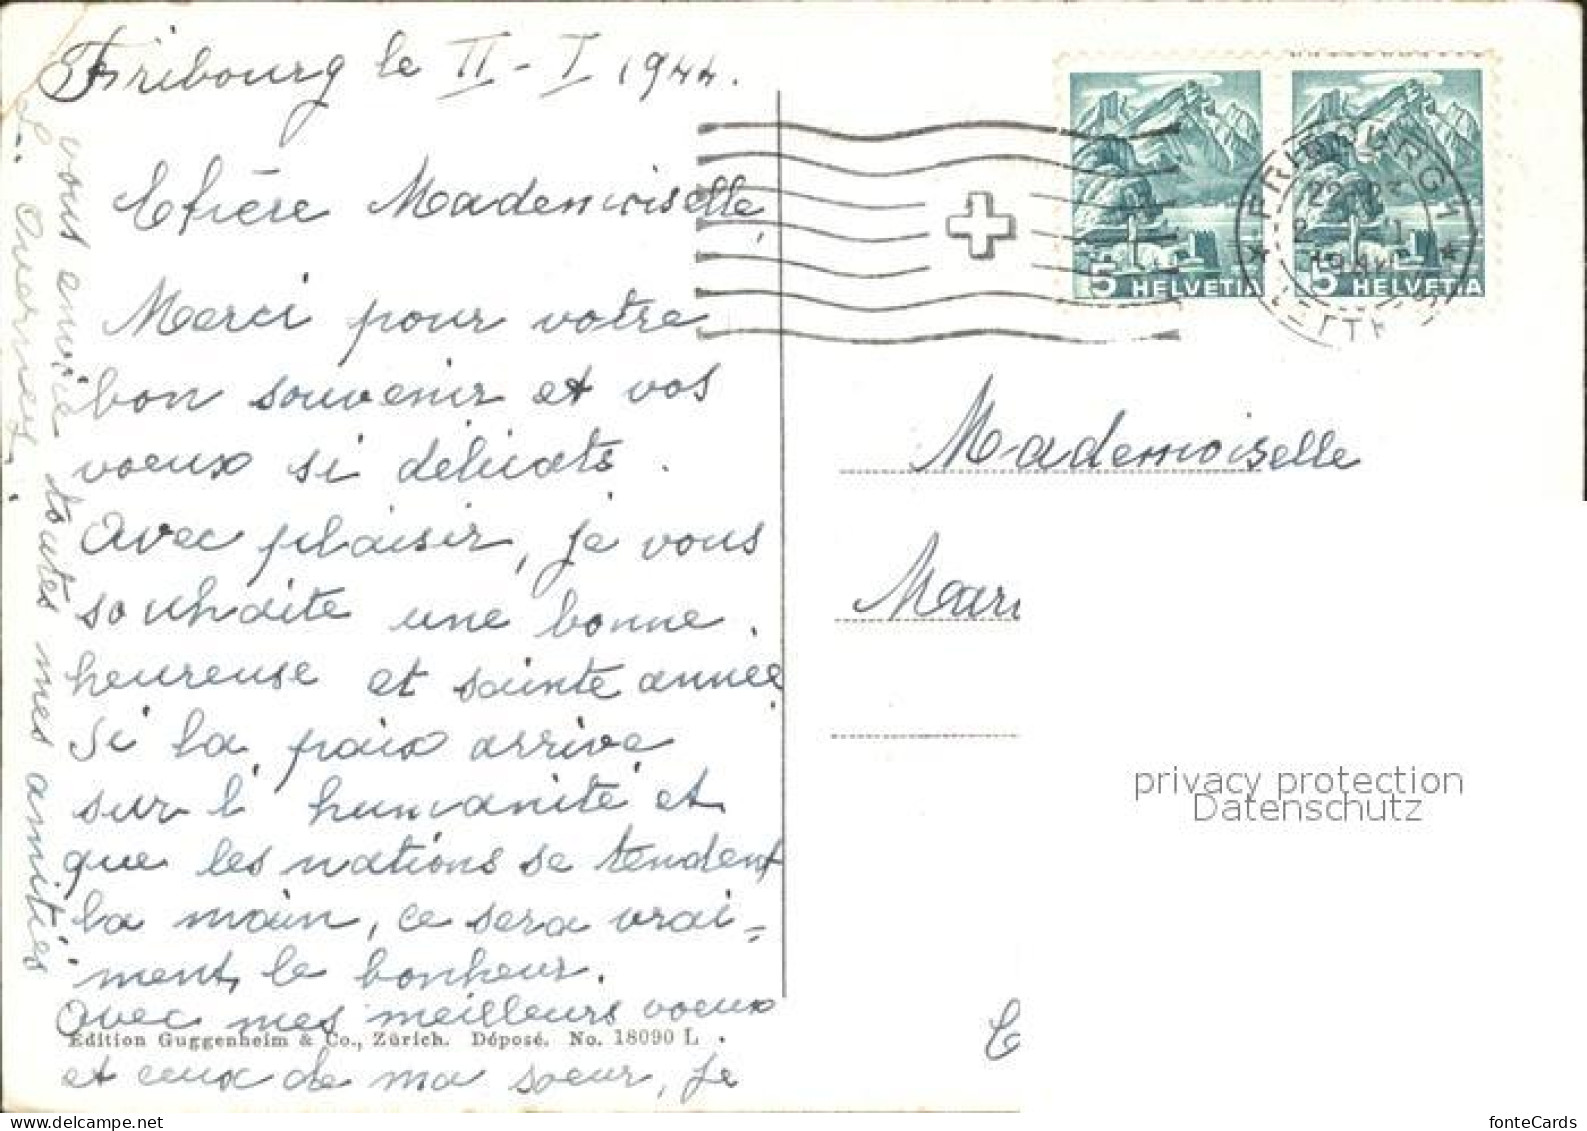 Fribourg le II - I 1944.
Chère Mademoiselle,
Merci pour votre
bon souvenir et vos
voeux si délicats.
Avec plaisir, je vous
souhaite une bonne,
heureuse et sainte année.
Si la paix arrive
sur l'humanité et
que les nations se tendent
la main, ce sera vrai=
ment, le bonheur.
Avec mes meilleurs voeux
et ceux de ma soeur, je
vous envoie toutes mes amitiés
Edition Guggenheim & Co., Zürich. Déposé. No. 18090 L.
5 HELVETIA
5 HELVETIA
FRIBOURG 1
Mademoiselle
Mari
privacy protection
Datenschutz
fonteCards